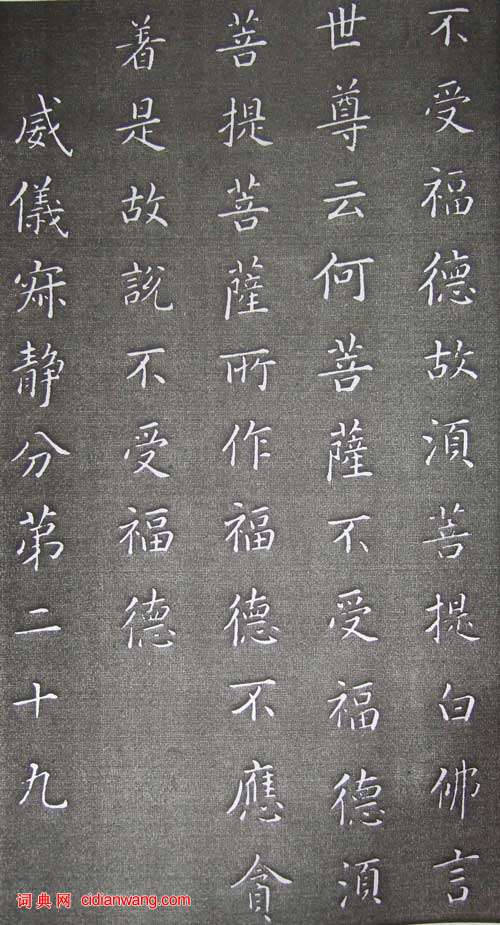 不受福德故須菩提白佛言
世尊云何菩薩不受福德須
菩提菩薩所作福德不應貪
着是故說不受福德
威儀寂静分第二十九
词典网 cidianwang.com